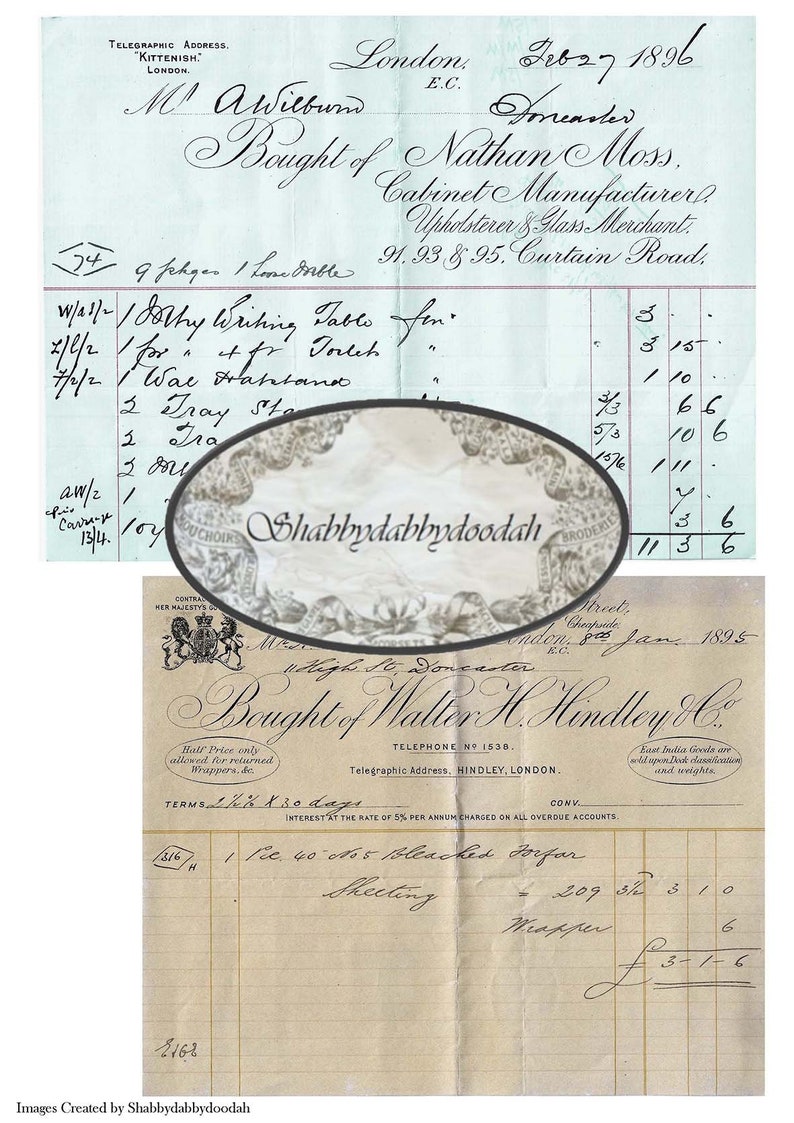 TELEGRAPHIC ADDRESS.
"KITTENISH."
LONDON.
London, Feb 27 1896
E.C.
Mr A Wilburn Doncaster
Bought of Nathan Moss,
Cabinet Manufacturer,
Upholsterer & Glass Merchant.
91. 93 & 95, Curtain Road.
74
9 pkges 1 Loose
W/a8/2 1 Writing Table 3 . .
2/8/2 1 " 4 ft Toilets " " 3 15 .
7/2/2 1 Wal Hatstand " 1 10 .
2 Tray Sta 3/3 6 6
2 Tra 5/3 10 6
2 15/6 1 11 .
AW/2 1 7 .
Carriage
13/4. 3 6
11 3 6
Shabbydabbydoodah
MOUCHOIRS
BRODERIE
CORSETS
CONTRAC
HER MAJESTY'S GO
Street,
Cheapside.
London, 8th Jan. 1895
E.C.
11 High St, Doncaster
Bought of Walter H. Hindley & Co.,
TELEPHONE No 1538.
Telegraphic Address, HINDLEY, LONDON.
Half Price only
allowed for returned
Wrappers. &c.
East India Goods are
sold upon Dock classification
and weights.
TERMS 2½% X 30 days CONV.
INTEREST AT THE RATE OF 5% PER ANNUM CHARGED ON ALL OVERDUE ACCOUNTS.
316 H 1 Pce. 40 No 5 Bleached Forfar
Sheeting = 209 3½ 3 1 0
Wrapper 6
£ 3-1-6
Images Created by Shabbydabbydoodah